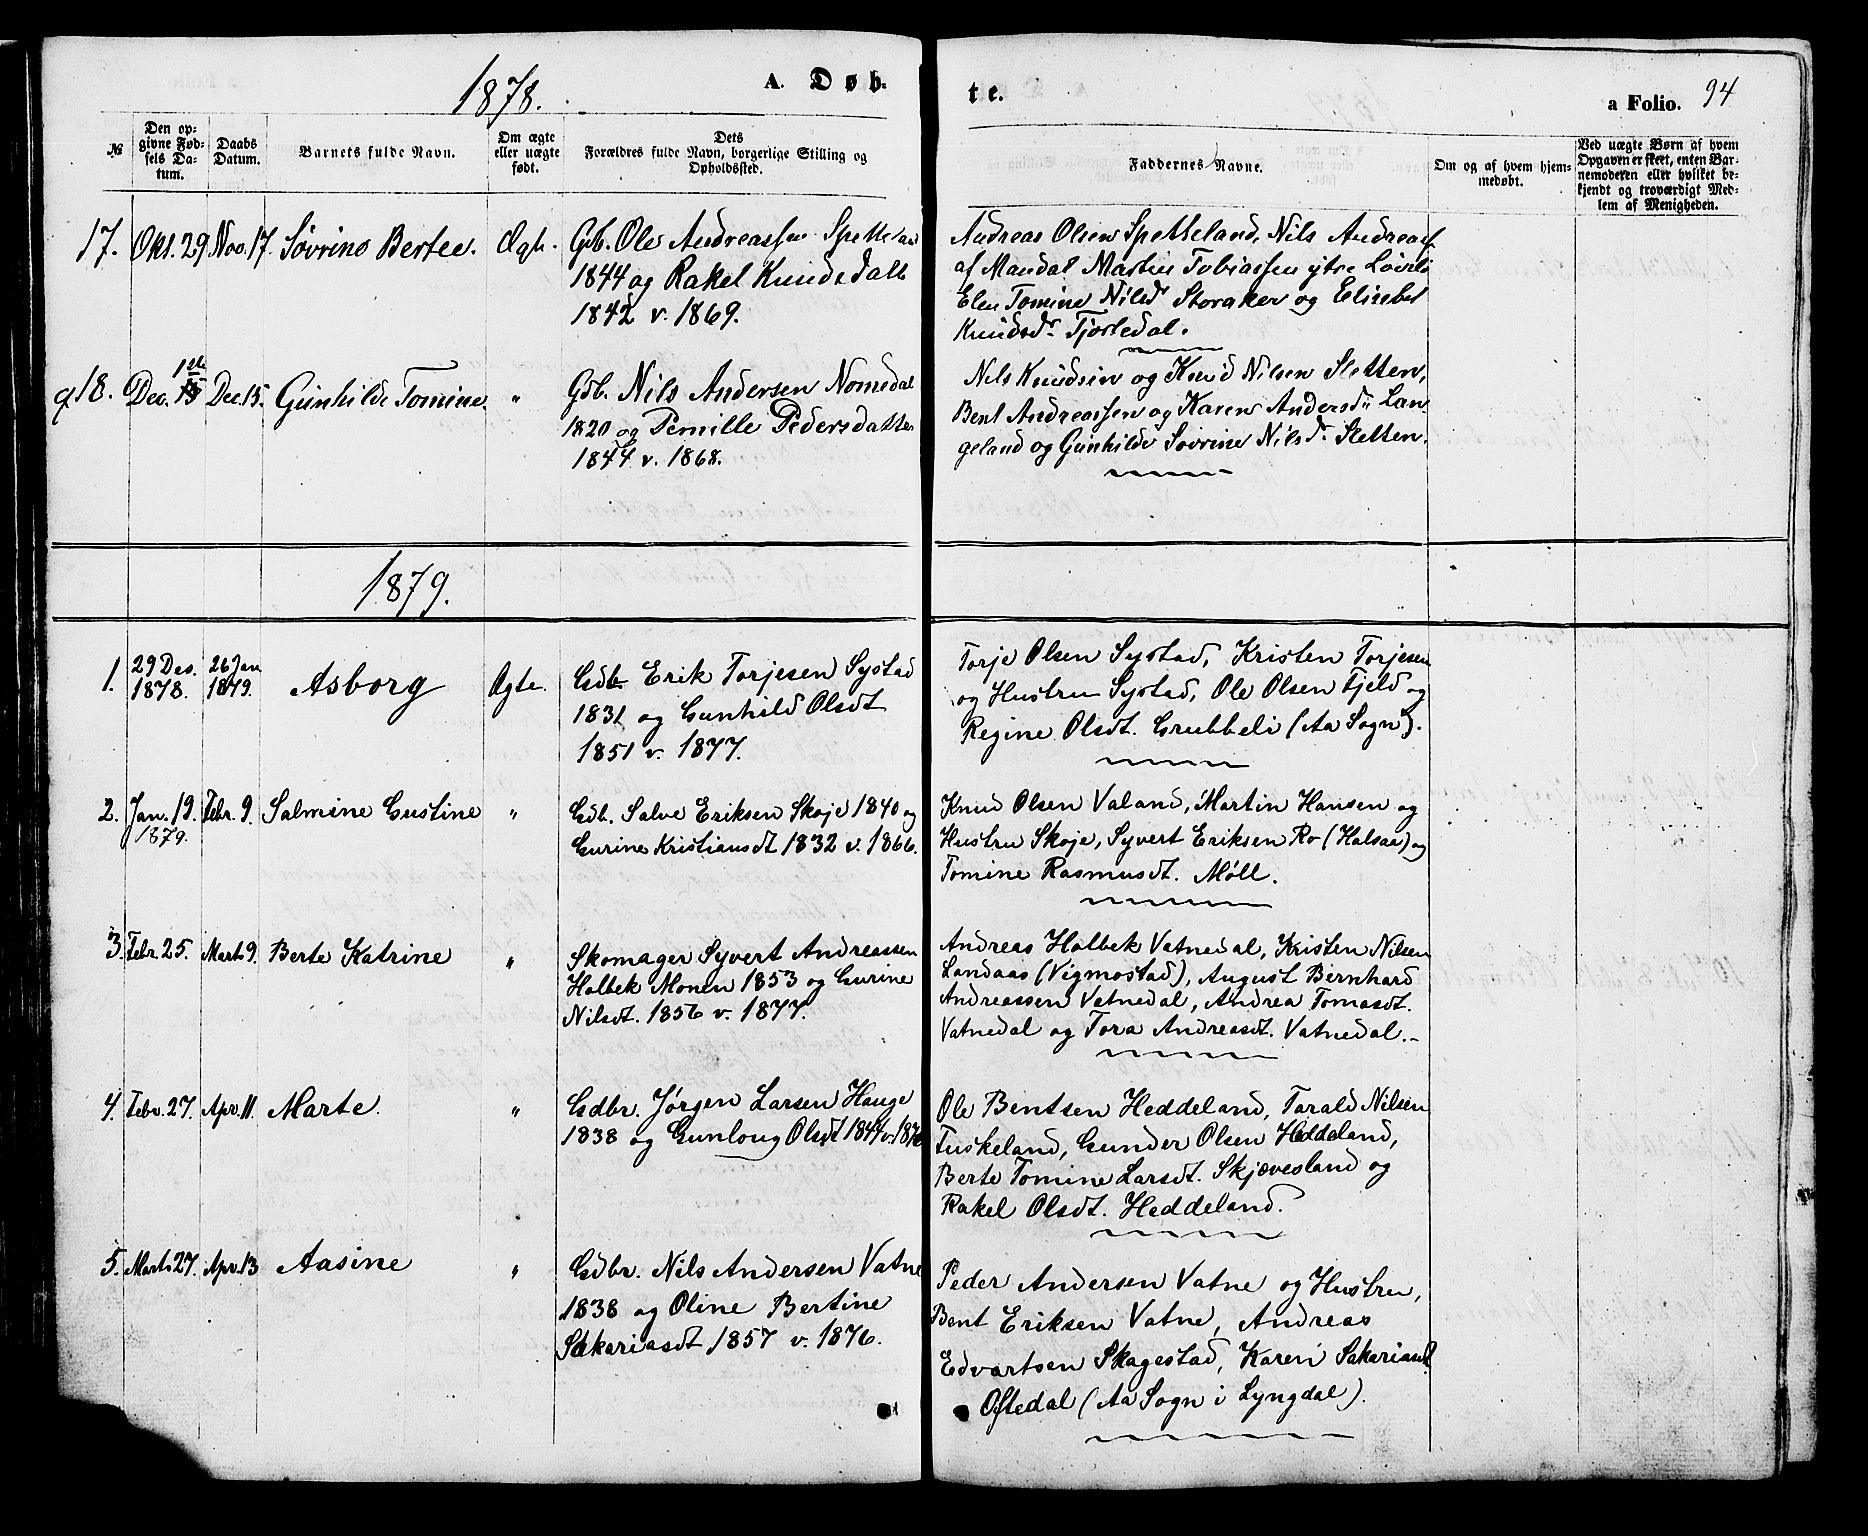 1878.
A. Døb-
te.
a Folio. 94
№
Den op-
givne Fød-
sels Da-
tum.
Daabs
Datum.
Barnets fulde Navn.
Om ægte
eller uægte
født.
Dets
Forældres fulde Navn, borgerlige Stilling og
Opholdssted.
Faddernes Navne.
Om og af hvem hjem-
medøbt.
Ved uægte Børn af hvem
Opgaven er skeet, enten Bar-
nemoderen eller hvilket be-
kjendt og troværdigt Med-
lem af Menigheden.
17. Okt. 29 Nov. 17 Søvrine Bertee. Ægte.
Gdb. Ole Andreassen Spetteland
1844 og Rakel Knudsdatt
1842 v. 1869.
Andreas Olsen Spetteland, Nils Andreass.
af Mandal Martin Tobiassen ytre Løvli
Elen Tomine Nilsdr Storaker og Elisebet
Knudsdr Tjorledal.
18. Dec. 1ste Dec. 15. Gunhilde Tomine. "
Gdb. Nils Andersen Nomedal
1820 og Pernille Pedersdatter
1844 v. 1868.
Nils Knudsen og Knud Nilsen Sletten,
Bent Andreassen og Karen Andersdr Lan-
geland og Gunhilde Søvrine Nilsdr Sletten.
1879.
1. 29 Des. 1878. 26 Jan 1879. Asborg Ægte.
Gdb Erik Torjesen Systad
1831 og Gunhild Olsdt
1851 v. 1877.
Torje Olsen Systad, Kristen Torjesen
og Hustru Systad, Ole Olsen Fjeld og
Regine Olsdt. Grubbeli (Aa Sogn).
2. Jan. 19. 1879. Febr. 9. Salmine Gustine "
Gdb. Salve Eriksen Skoje 1840 og
Gurine Kristiansdt 1832 v. 1866.
Knud Olsen Valand, Martin Hansen og
Hustru Skoje, Syvert Eriksen Ro (Halsaa) og
Tomine Rasmusdt. Møll.
3. Febr. 25. Marts 9. Berte Katrine "
Skomager Syvert Andreassen
Holbek Monen 1853 og Gurine
Nilsdt. 1856 v. 1877.
Andreas Holbek Vatnedal, Kristen Nilsen
Landaas (Vigmostad), August Bernhard
Andreassen Vatnedal, Andrea Tomasdt.
Vatnedal og Tora Andreasdt. Vatnedal.-
4. Febr. 27. Apr. 11. Marte. "
Gdbr. Jørgen Larsen Hauge
1838 og Gunloug Olsdt 1844 v. 187
Ole Bentsen Heddeland, Tarald Nilsen
Tuskeland, Gunder Olsen Heddeland,
Berte Tomine Larsdt. Skjævesland og
Rakel Olsdt. Heddeland.
5. Marts 27. Apr. 13 Aasine "
Gdbr. Nils Andersen Vatne
1838 og Oline Bertine
Sakariasdt 1857 v. 1876.
Peder Andersen Vatne og Hustru,
Bent Eriksen Vatne, Andreas
Edvartsen Skagestad, Karen Sakariasd.
Oftedal (Aa Sogn i Lyngdal).